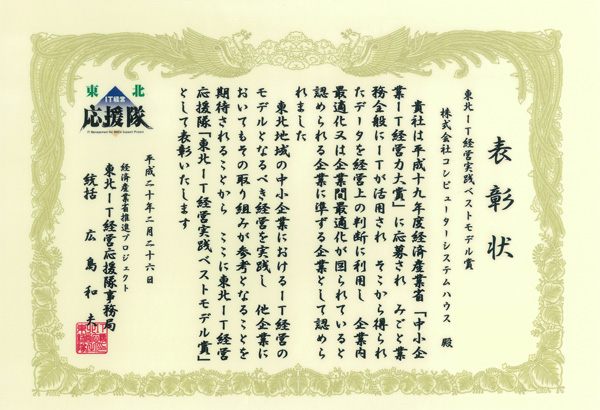 表彰状
東北IT経営実践ベストモデル賞
株式会社コンピューターシステムハウス 殿
貴社は平成十九年度経済産業省「中小企
業IT経営力大賞」に応募され みごと業
務全般にITが活用され そこから得られ
たデータを経営上の判断に利用し 企業内
最適化又は企業間最適化が図られていると
認められる企業に準ずる企業として認めら
れました
東北地域の中小企業におけるIT経営の
モデルとなるべき経営を実践し 他企業に
おいてもその取り組みが参考となることを
期待されることから ここに東北IT経営
応援隊「東北IT経営実践ベストモデル賞」
として表彰いたします
平成二十年二月二十六日
経済産業省推進プロジェクト
東北IT経営応援隊事務局
統括 広島和夫
東北
IT経営
応援隊